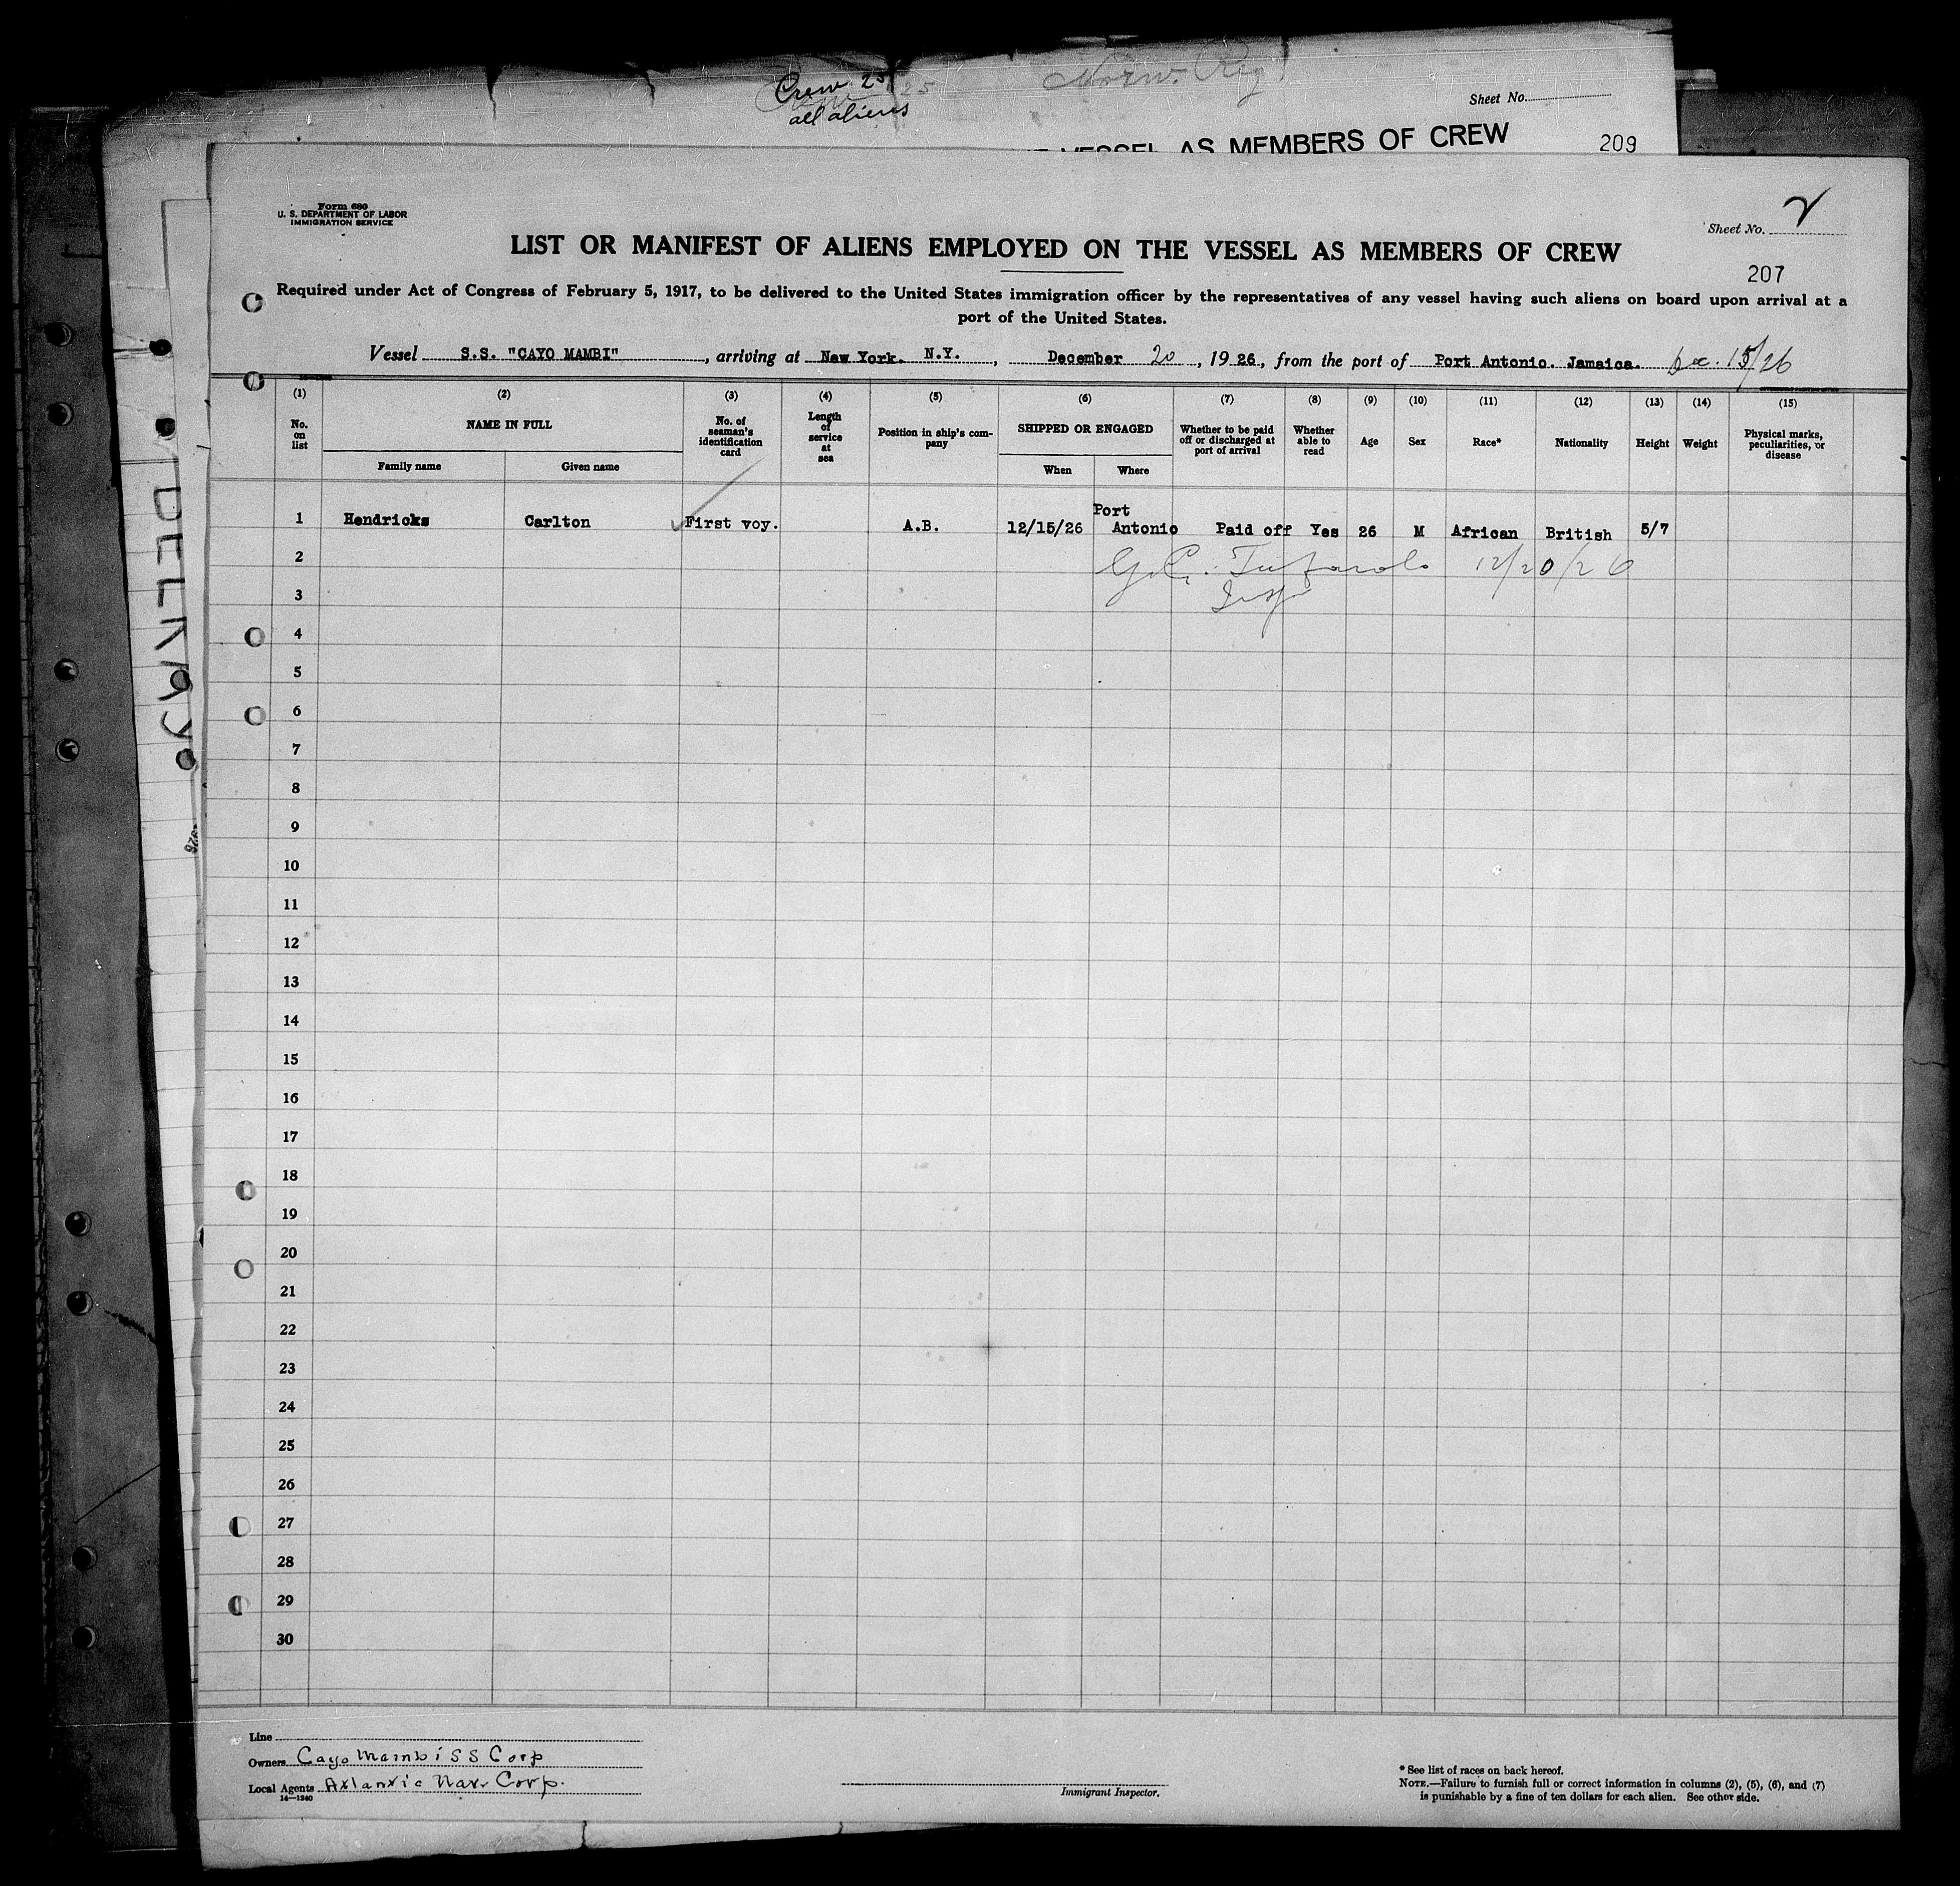 Crew 25 25
all aliens
Norw. Reg
Sheet No.
VESSEL AS MEMBERS OF CREW
209
Form 680
U. S. DEPARTMENT OF LABOR
IMMIGRATION SERVICE
Sheet No. 2
LIST OR MANIFEST OF ALIENS EMPLOYED ON THE VESSEL AS MEMBERS OF CREW
207
Required under Act of Congress of February 5, 1917, to be delivered to the United States immigration officer by the representatives of any vessel having such aliens on board upon arrival at a
port of the United States.
Vessel S.S. "CAYO MAMBI", arriving at New York. N.Y., December 20, 1926, from the port of Port Antonio. Jamaica. Dec. 15/26
(1) (2) (3) (4) (5) (6) (7) (8) (9) (10) (11) (12) (13) (14) (15)
No. on list
NAME IN FULL
Family name
Given name
No. of seaman's identification card
Length of service at sea
Position in ship's company
SHIPPED OR ENGAGED
When
Where
Whether to be paid off or discharged at port of arrival
Whether able to read
Age
Sex
Race*
Nationality
Height
Weight
Physical marks, peculiarities, or disease
1 Hendricks Carlton First voy. A.B. 12/15/26 Port Antonio Paid off Yes 26 M African British 5/7
2 12/20/26
3 Insp
4
5
6
7
8
9
10
11
12
13
14
15
16
17
18
19
20
21
22
23
24
25
26
27
28
29
30
Line
Owners Cayo Mambi S S Corp
Local Agents Atlantic Nav. Corp.
14—1240
Immigrant Inspector.
* See list of races on back hereof.
NOTE.—Failure to furnish full or correct information in columns (2), (5), (6), and (7)
is punishable by a fine of ten dollars for each alien. See other side.